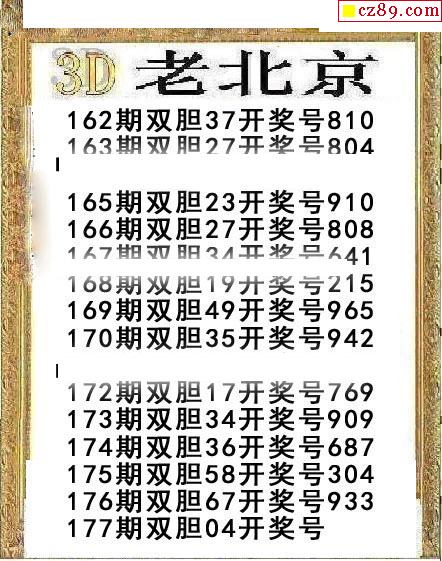 cz89.com
3D 老北京
162期双胆37开奖号810
163期双胆27开奖号804
165期双胆23开奖号910
166期双胆27开奖号808
167期双胆34开奖号641
168期双胆19开奖号215
169期双胆49开奖号965
170期双胆35开奖号942
172期双胆17开奖号769
173期双胆34开奖号909
174期双胆36开奖号687
175期双胆58开奖号304
176期双胆67开奖号933
177期双胆04开奖号